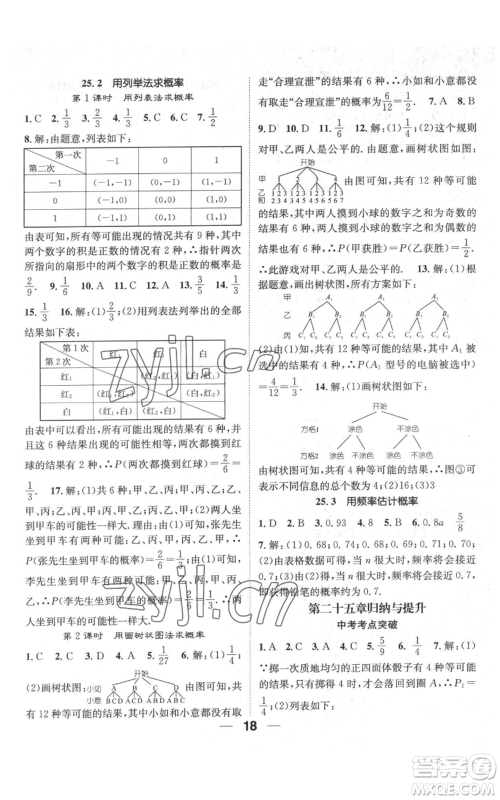 25.2 用列举法求概率
第1课时 用列表法求概率
1. C 2. 1/3 3. 2/3 4. 1/3 5. C 6. C 7. 1/2
8. 解：由题意，列表如下：
第一次 -1 0 1
第二次
-1 (-1,-1) (0,-1) (1,-1)
0 (-1,0) (0,0) (1,0)
1 (-1,1) (0,1) (1,1)
由表可知，所有等可能的情况共有9种，其中
两个数字的积是正数的情况有2种，∴指针两次
所指的扇形中的两个数字的积是正数的概率是
2/9. 9. D 10. A 11. C 12. A 13. 3/5 14. 1/3
15. 1/3 16. 解：(1)2/3 (2)用列表法列举出的全部
结果如下表：
第1次 红1 红2 白
第2次
红1 (红1,红2) (红1,白)
红2 (红2,红1) (红2,白)
白 (白,红1) (白,红2)
由表中可以看出，所有可能的结果有6种，而且
这些结果出现的可能性相等，其中两次都摸到红
球的结果共有2种，∴P(两次都摸到红球)=2/6
=1/3. 17. 解：(1)甲、乙、丙；甲、丙、乙；乙、甲、
丙；乙、丙、甲；丙、甲、乙；丙、乙、甲 (2)由(1)可
知，共有6种等可能的结果，其中张先生坐到甲
车有两种可能：乙、丙、甲；丙、乙、甲，∴P(张先
生坐到甲车的概率)=2/6=1/3；李先生坐到甲车
有两种可能：甲、乙、丙；甲、丙、乙，∴P(李先生坐
到甲车的概率)=2/6=1/3.
第2课时 用画树状图法求概率
1. C 2. C 3. A 4. D 5. 1/27 6. 解：(1)1/4；
(2)画树状图：
开始
小如 A B C D
小意 BCD ACD ABD ABC
由图可知，
共有12种等可能的结果，其中小如和小意都没有取
走“合理宣泄”的结果有6种，∴小如和小意都没
有取走“合理宣泄”的概率为6/12=1/2. 7. A 8. B
9. D 10. D 11. 1/3 12. 解：(1)2/4 (2)这个规则
对甲、乙两人是公平的.由题意，画树状图如下：
开始
甲 1 2 3 4
乙
和
由图可知，共有12种等可能
的结果，其中两人摸到小球的数字之和为奇数的
结果有6种，两人摸到小球的数字之和为偶数的
结果有6种，∴P(甲获胜)=P(乙获胜)=1/2，
∴此游戏对甲、乙两人是公平的. 13. 解：(1)根据
题意画树状图如下，所有方案如下：
甲 A1 A2 A3
乙 B1 B2 B1 B2 B1 B2
丙 C1 C2 C1 C2 C1 C2 C1 C2 C1 C2 C1 C2
(2)由(1)中树状图可知，共有12种等可能的结果，其中A1被选中的结果有4种，∴P(A1被选中)
=4/12=1/3. 14. 解：(1)画树状图如图：
开始
方格1 涂色 不涂色
方格2 涂色 不涂色 涂色 不涂色
由树状图可知，共有4种可能的结果，∴图③可
表示不同信息的总个数为4；(2)16；(3)3
25.3 用频率估计概率
1. D 2. B 3. 0.93 4. A 5. 20 6. 0.8a 5/8
7. 解：(1)0.68；0.74；0.68；0.69；0.71；0.70；
(2)由表格中数据可知，随着n的增大，频率将会
接近0.7；(3)当n很大时，频率将会接近0.7，即
获得铅笔的概率约是0.7.
第二十五章归纳与提升
中考考点突破
1. B 2. D 3. C 4. C 5. 5/9 6. 1/4 7. 解：
(1)∵掷一次质地均匀的正四面体骰子有4种等
可能的结果，只有掷得1时，甲可中奖，∴P1=
1/4；(2)公平.理由：画树状图：
18
zyjl.cn
zyjl.cn
答案圈